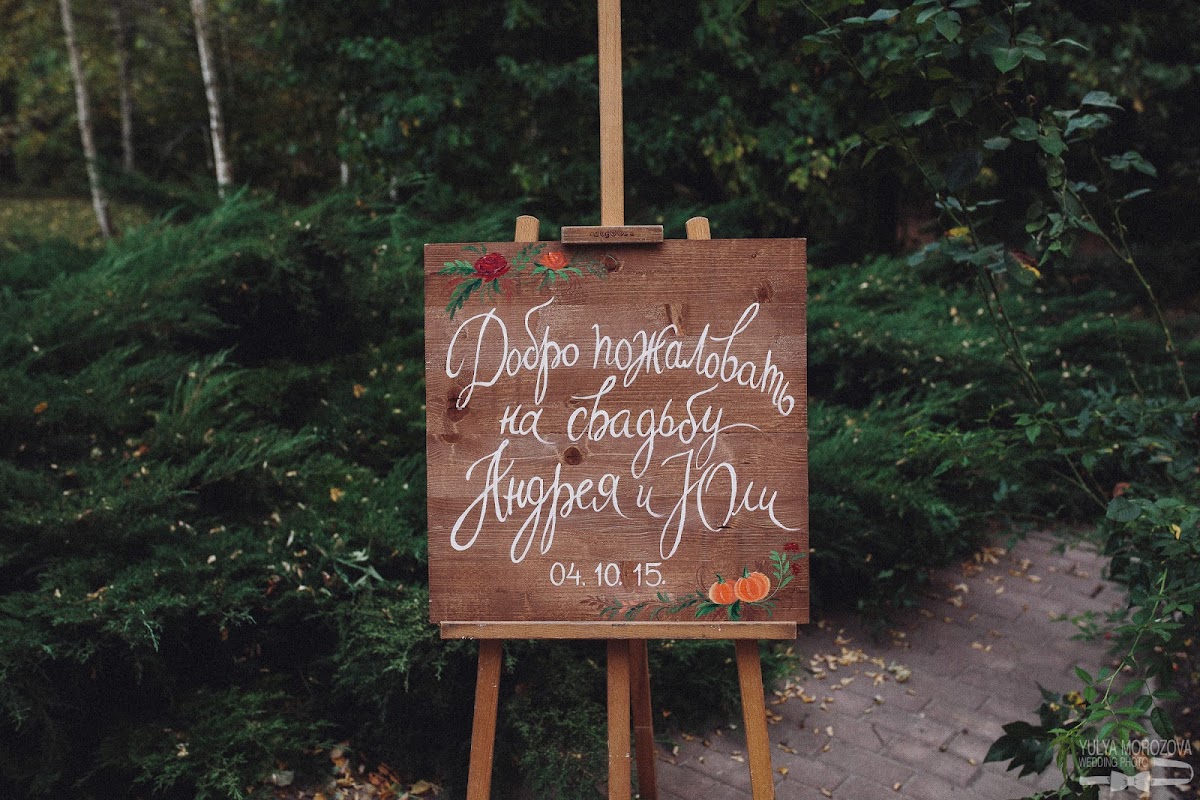 Добро пожаловать
на свадьбу
Андрея и Юли
04. 10. 15.
YULYA MOROZOVA
WEDDING PHOTO